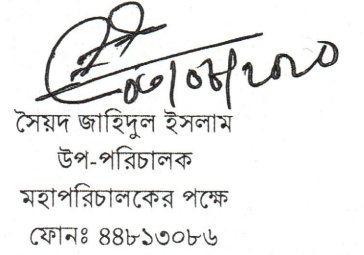 সৈয়দ জাহিদুল ইসলাম
উপ-পরিচালক
মহাপরিচালকের পক্ষে
ফোনঃ ৪৪৮১৩০৮৬